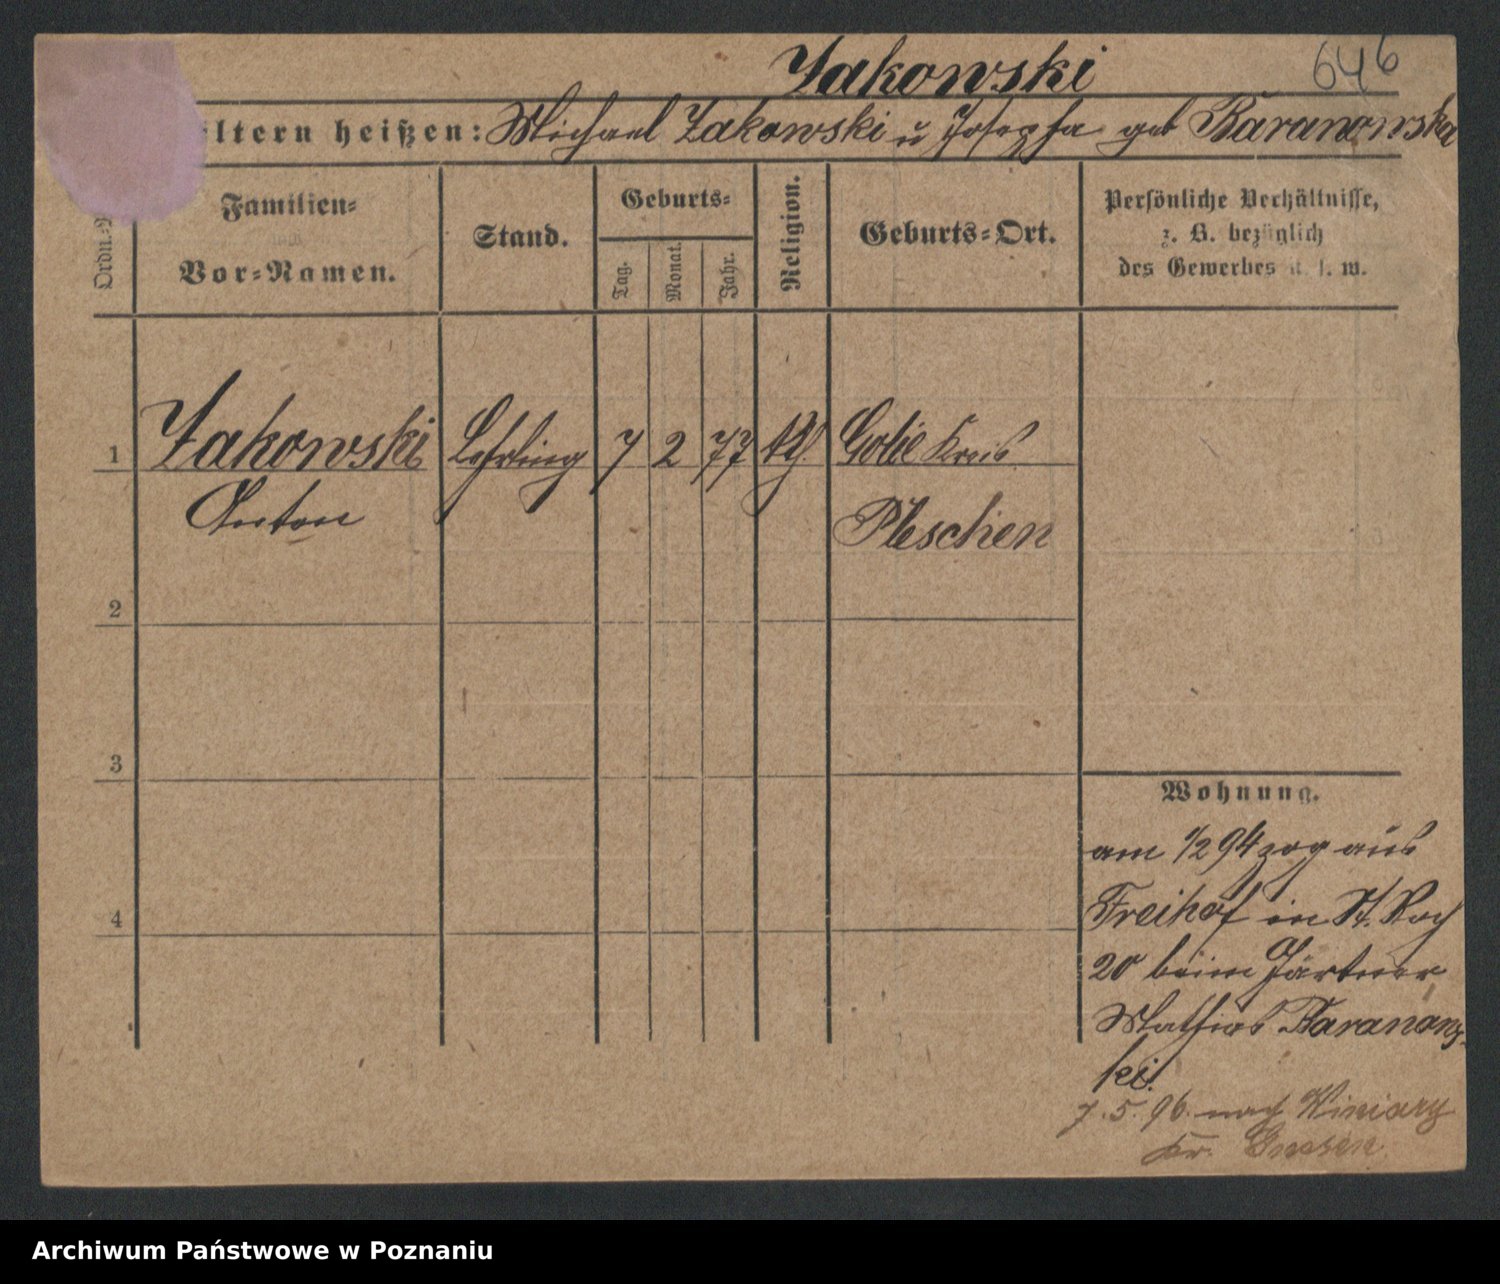 Zakowski 646
ltern heißen: Michael Zakowski u Josepha geb Baranowska
Ordn.-
Familien-
und
Vor-Namen.
Stand.
Geburts-
Tag.
Monat.
Jahr.
Religion.
Geburts-Ort.
Persönliche Verhältnisse,
z. B. bezüglich
des Gewerbes u. s. w.
1 Zakowski Lehrling 7 2 77 Kreis
Anton Pleschen
2
3
Wohnung.
am 1/2 94 zog aus
Freihof in St. Roch
4
20 beim Gärtner
Mathias
ki.
7.5.96. nach Winiary
Kr. Gnesen
Archiwum Państwowe w Poznaniu